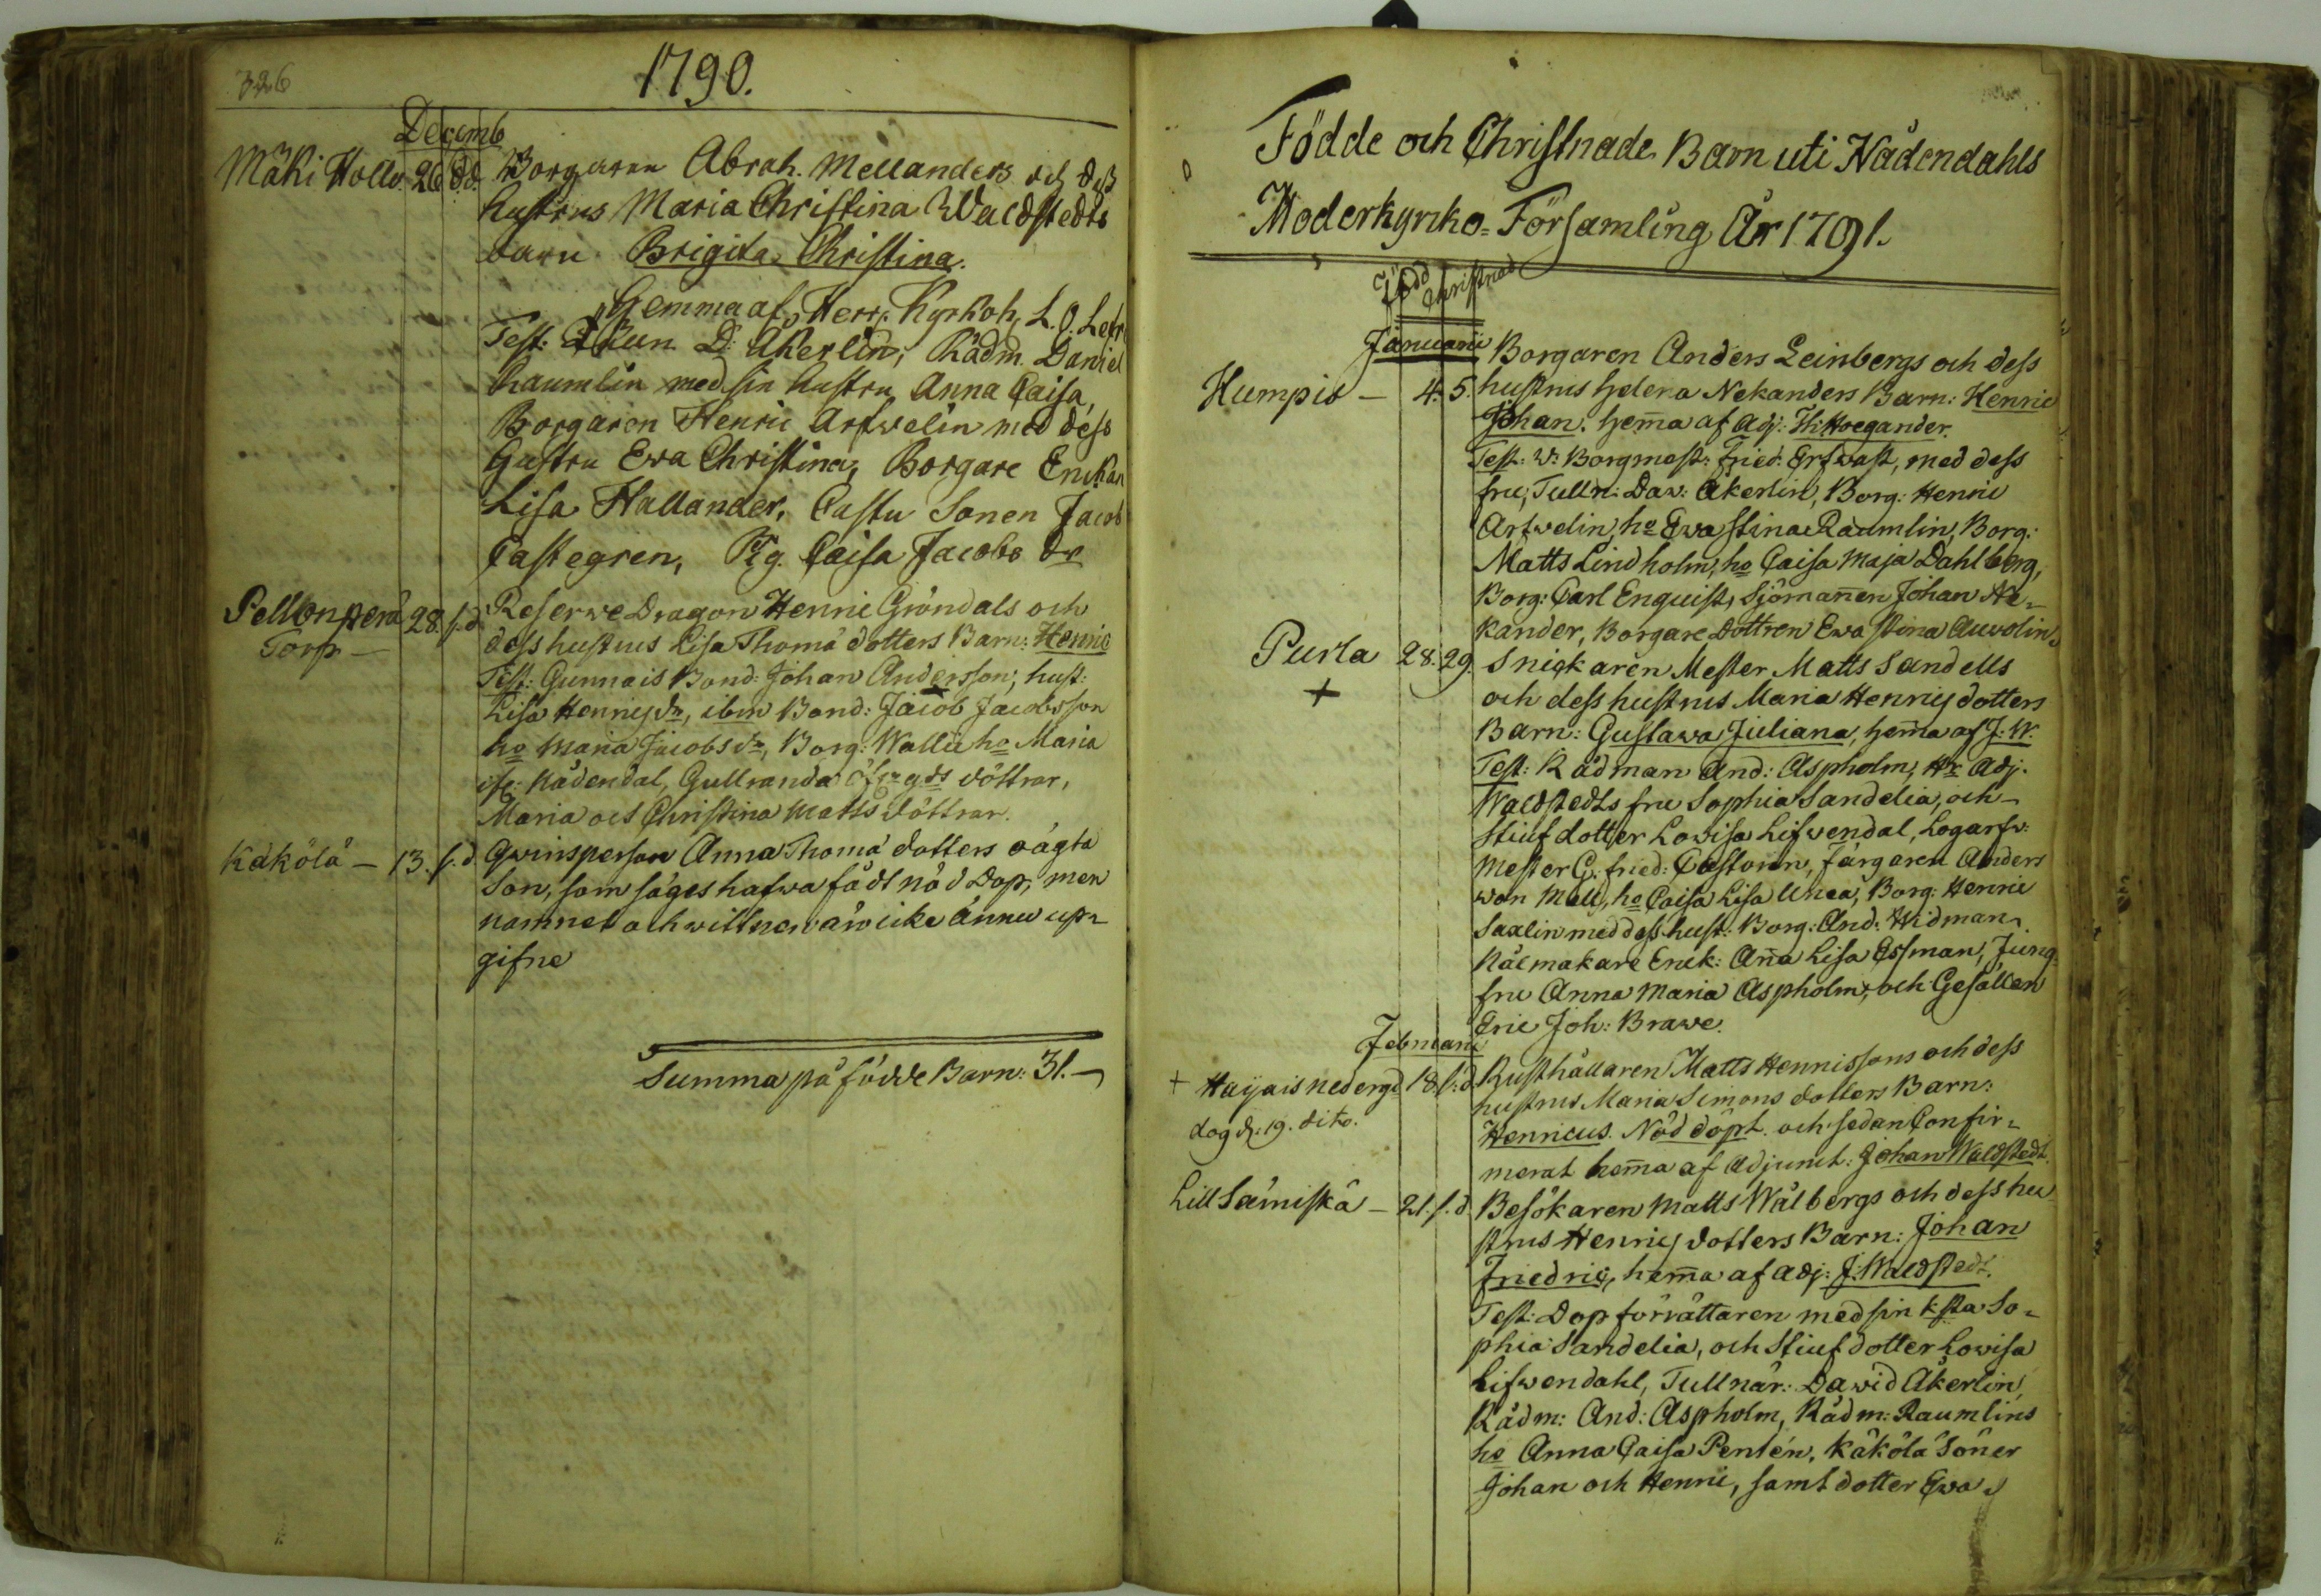 326
1790.
Decemb
Mäki Hollo 26 d:d. Borgaren Abrah. Mellanders och dess
hustrus Maria Christina Waldstedts
barn Brigita Christina.
Hemma af Herr Kyrkoh, L. O. Lefr
Test: D: Åkerlin, Rådm. Daniel
Raumlin med sin hustru Anna Caisa,
Borgaren Henric Arfwelin med dess
hustru Eva Christina, Borgare Enckan
Lisa Hallander, Castu Sonen Jacob
Castegren, Pig. Caisa Jacobs dr
Pellonperä 28. s.d. Reserwe Dragon Henric Gröndals och
Torp — dess hustrus Lisa Thomä dotters Barn: Henric
Test: Gunnais Bond: Johan Andersson, hust:
Lisa Henrigs dr, ibm Bond: Jacob Jacobsson
ho Maria Jacobs dr, Borg: Wallu ho Maria
Nådendal, Gullranda döttrar,
Maria och Christina Matts döttrar.
Käkölä — 13. s.d. Qwinsperson Anna Thomä dotters oägta
Son, som säges hafwa fådt nöd Dop, men
namnet och wittnen äro icke ännu up-
gifne
Summa på födde Barn: 31. —
Födde och Christnade Barn uti Nådendahls
Moderkyrko-Församling År 1791.
Född Christnad
Januarii Borgaren Anders Leinbergs och dess
Humpis — 4. 5. hustrus Helena Nekanders Barn: Henric
Johan. hem̄a af Adj: H: Hoegander.
Test: W: Borgmäst: Fried: Erfwast, med dess
fru, Tulln: Daw: Åkerlin, Borg: Henric
Arfwelin, ho Ewa Stina Raumlin, Borg:
Matts Lindholm, ho Caisa Maja Dahlberg,
Borg: Carl Enquist, Sjöman̄en Johan Ne-
kander, Borgare Dottren Ewa Stina Auwolin.
Purla 28. 29. Snickaren Mester Matts Sandells
+ och dess hustrus Maria Henrigs dotters
Barn: Gustawa Juliana, hem̄a af J: W.
Test: Rådman And: Aspholm, Hr Adj.
Waldstedts fru Sophia Sandelia, och
Stiuf dotter Lowisa Lifwendal, Logarfw:
Mester G: Fried: Castorin, färgaren Anders
won Mell, ho Caisa Lisa Unca, Borg: Henric
Saxlin med dess hust: Borg: And: Widman
Nålmakare Enck: An̄a Lisa Essman, Jung-
fru Anna Maria Aspholm, och Gesällen
Eric Joh: Brawe.
Februarii
+ Haijais nedergd 18. s:d. Rusthållaren Matts Henrissons och dess
dog d: 19. dito. hustrus Maria Simons dotters Barn:
Henricus. Nöd döpt och sedan Confir-
merat hem̄a af Adjunct: Johan Waldstedt.
Lill Säiniskä — 21. s.d. Besökaren Matts Wålbergs och dess hu
strus Henrigs dotters Barn: Johan
Friedric, hem̄a af Adj: J: Waldstedt.
Test: Dop förrättaren med sin k:sta So-
phia Sandelia, och Stiuf dotter Lowisa
Lifwendahl, Tullnär: Dawid Åkerlin,
Rådm: And: Aspholm, Rådm: Raumlins
ho Anna Caisa Pentén, Käkölä Söner
Johan och Henric, samt dotter Ewa